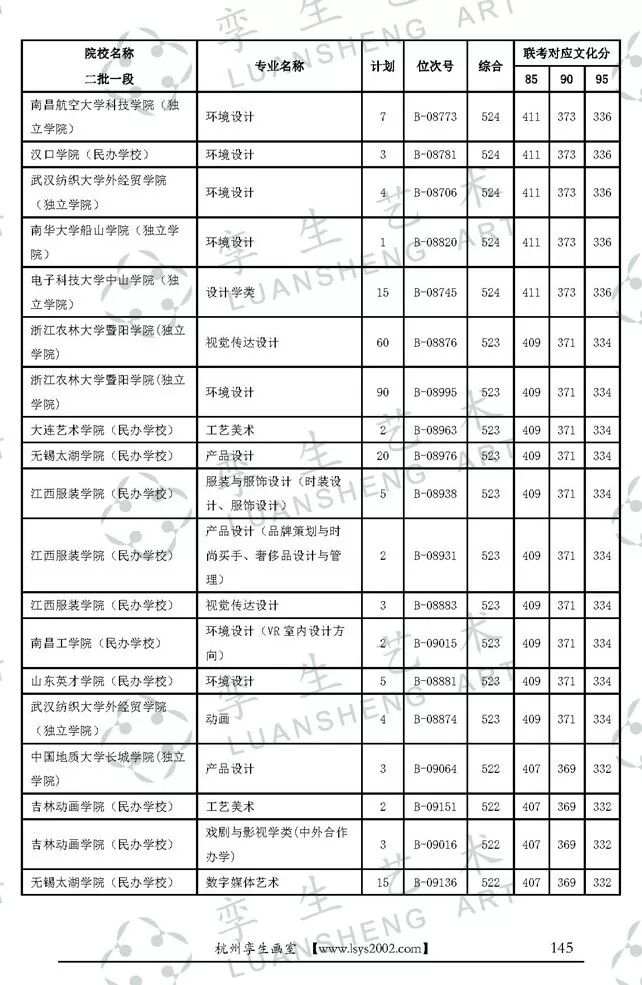 孪生艺术
LUANSHENG ART
院校名称
二批一段
专业名称
计划
位次号
综合
联考对应文化分
85 90 95
南昌航空大学科技学院（独
立学院）
环境设计 7 B-08773 524 411 373 336
汉口学院（民办学校） 环境设计 3 B-08781 524 411 373 336
武汉纺织大学外经贸学院
（独立学院）
环境设计 4 B-08706 524 411 373 336
南华大学船山学院（独立学
院）
环境设计 1 B-08820 524 411 373 336
电子科技大学中山学院（独
立学院）
设计学类 15 B-08745 524 411 373 336
浙江农林大学暨阳学院(独立
学院)
视觉传达设计 60 B-08876 523 409 371 334
浙江农林大学暨阳学院(独立
学院)
环境设计 90 B-08995 523 409 371 334
大连艺术学院（民办学校） 工艺美术 2 B-08963 523 409 371 334
无锡太湖学院（民办学校） 产品设计 20 B-08976 523 409 371 334
江西服装学院（民办学校）
服装与服饰设计（时装设
计、服饰设计）
5 B-08938 523 409 371 334
江西服装学院（民办学校）
产品设计（品牌策划与时
尚买手、奢侈品设计与管
理）
2 B-08931 523 409 371 334
江西服装学院（民办学校） 视觉传达设计 3 B-08883 523 409 371 334
南昌工学院（民办学校）
环境设计（VR 室内设计方
向）
2 B-09015 523 409 371 334
山东英才学院（民办学校） 环境设计 5 B-08881 523 409 371 334
武汉纺织大学外经贸学院
（独立学院）
动画 4 B-08874 523 409 371 334
中国地质大学长城学院(独立
学院)
产品设计 3 B-09064 522 407 369 332
吉林动画学院（民办学校） 工艺美术 2 B-09151 522 407 369 332
吉林动画学院（民办学校）
戏剧与影视学类(中外合作
办学)
3 B-09016 522 407 369 332
无锡太湖学院（民办学校） 数字媒体艺术 15 B-09136 522 407 369 332
杭州孪生画室 【www.lsys2002.com】 145